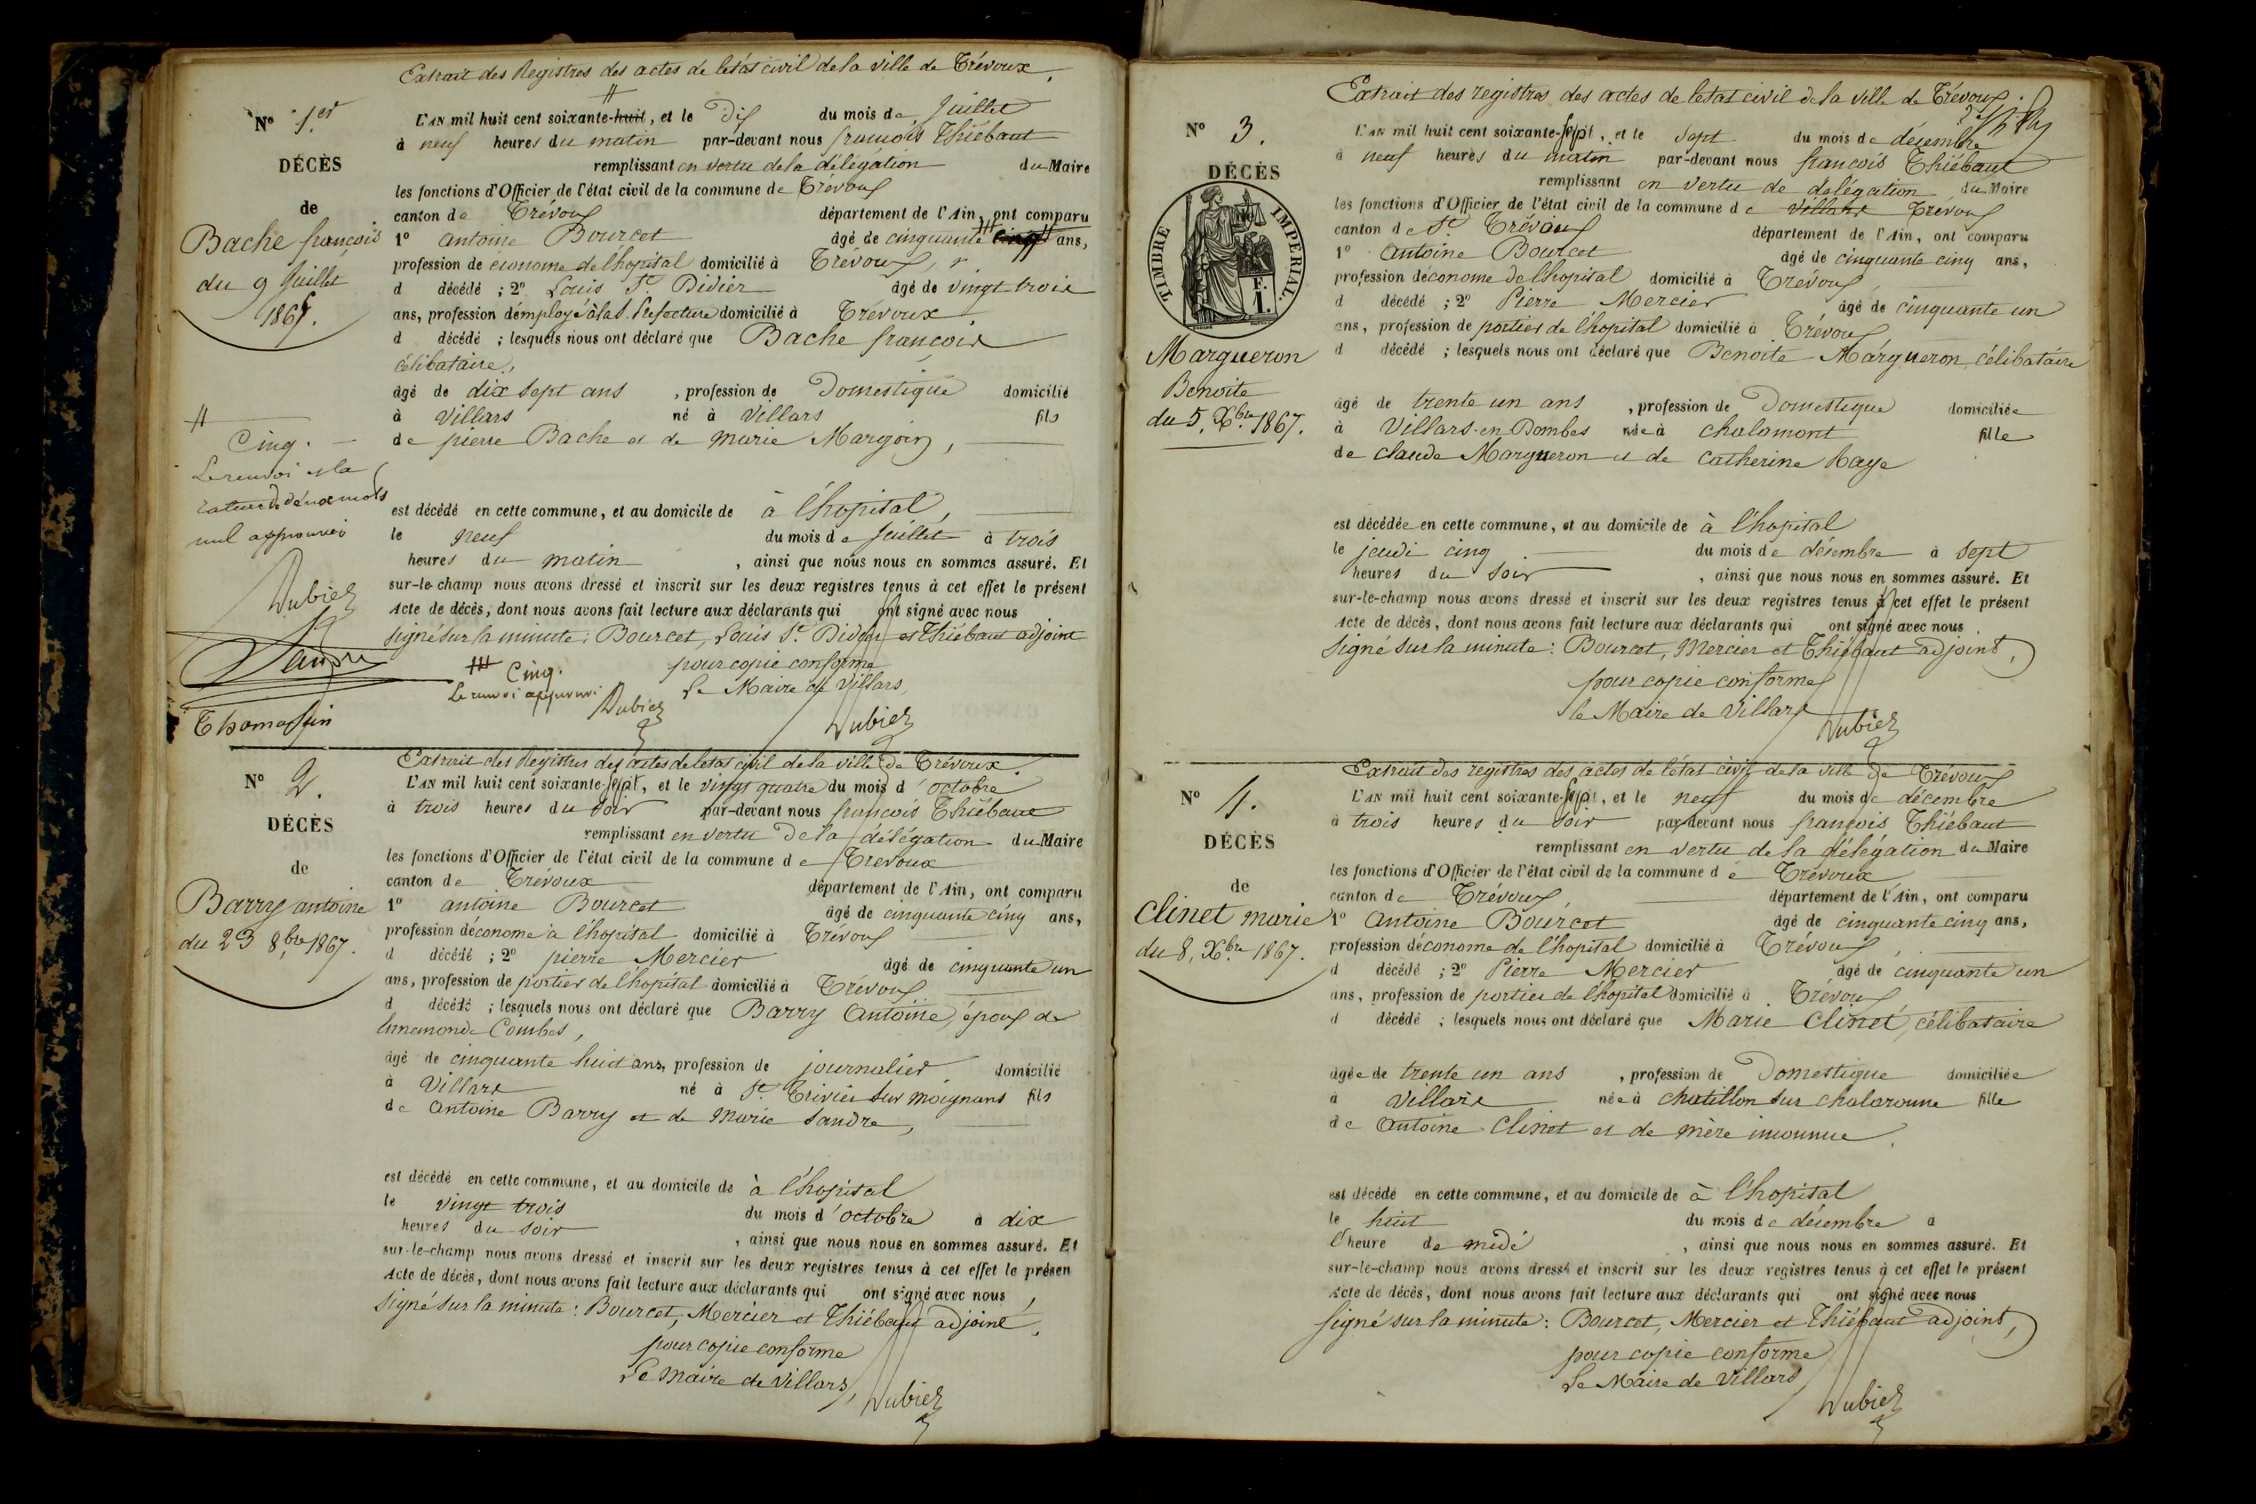 Extrait des Registres des actes de letat civil de la ville de Trévoux.
N° 1er
DÉCÈS
de
Bache françois
du 9 Juillet
1865.
#
L'AN mil huit cent soixante-huit, et le Dix du mois de Juillet
à neuf heures du matin par-devant nous françois Thiébaut
remplissant en vertu de la délégation du Maire
les fonctions d'Officier de l'état civil de la commune de Trévoux
canton de Trévoux département de l'Ain, ont comparu
1° antoine Bourcet âgé de cinquante cinq ans,
profession de econome de l'hopital domicilié à Trévoux,
d décédé ; 2° Louis St Didier âgé de vingt trois
ans, profession d'employé à la S. Prefecture domicilié à Trévoux
d décédé ; lesquels nous ont déclaré que Bache françois
célibataire,
âgé de dix sept ans , profession de Domestique domicilié
à Villars né à Villars fils
de pierre Bache et de marie Margoin,
est décédé en cette commune, et au domicile de à l'hopital,
le neuf du mois de Juillet à trois
heures du matin , ainsi que nous nous en sommes assuré. Et
sur-le-champ nous avons dressé et inscrit sur les deux registres tenus à cet effet le présent
Acte de décès, dont nous avons fait lecture aux déclarants qui ont signé avec nous
signé sur la minute : Bourcet, Louis St Didier et Thiébaut adjoint
pour copie conforme
Le Maire de Villars,
Dubiez
# Cinq.
Le renvoi et la
rature de deux mots
nul approuvés
Dubiez
Sandre
Thomassin
Cinq.
Le renvoi approuvé
Dubiez
Extrait des Registres des actes de letat civil de la ville de Trévoux.
N° 2.
DÉCÈS
de
Barry antoine
du 23 8bre 1867.
L'AN mil huit cent soixante-sept, et le vingt quatre du mois d'octobre
à trois heures du soir par-devant nous françois Thiébaut
remplissant en vertu de la délégation du Maire
les fonctions d'Officier de l'état civil de la commune de Trevoux
canton de Trévoux département de l'Ain, ont comparu
1° antoine Bourcet âgé de cinquante cinq ans,
profession d'econome à l'hopital domicilié à Trévoux
d décédé ; 2° pierre Mercier âgé de cinquante un
ans, profession de portier de l'hopital domicilié à Trévoux
d décédé ; lesquels nous ont déclaré que Barry Antoine, époux de
Combes,
âgé de cinquante huit ans, profession de journalier domicilié
à Villars né à St. Trivier sur moignans fils
de Antoine Barry et de Marie Sandre,
est décédé en cette commune, et au domicile de à l'hopital
le vingt trois du mois d'octobre à dix
heures du soir , ainsi que nous nous en sommes assuré. Et
sur-le-champ nous avons dressé et inscrit sur les deux registres tenus à cet effet le présen
Acte de décès, dont nous avons fait lecture aux déclarants qui ont signé avec nous
signé sur la minute : Bourcet, Mercier et Thiébaut adjoint.
pour copie conforme
Le Maire de Villars,
Dubiez
Extrait des registres des actes de letat civil de la ville de Trévoux.
N° 3.
DÉCÈS
TIMBRE IMPÉRIAL.
F.
1.
Margueron
Benoite
du 5. Xbre 1867.
L'AN mil huit cent soixante-sept, et le sept du mois de décembre
à neuf heures du matin par-devant nous françois Thiébaut
remplissant en vertu de délégation du Maire
les fonctions d'Officier de l'état civil de la commune de Villars Trévoux
canton de St. Trévoux département de l'Ain, ont comparu
1° Antoine Bourcet âgé de cinquante cinq ans,
profession d'econome de l'hopital domicilié à Trévoux
d décédé ; 2° Pierre Mercier âgé de cinquante un
ans, profession de portier de l'hopital domicilié à Trévoux
d décédé ; lesquels nous ont déclaré que Benoite Margueron célibataire
âgé de trente un ans , profession de Domestique domiciliée
à Villars-en-Dombes née à chalamont fille
de claude Margueron et de catherine Raye
est décédée en cette commune, et au domicile de à l'hopital
le jeudi cinq du mois de décembre à sept
heures du soir , ainsi que nous nous en sommes assuré. Et
sur-le-champ nous avons dressé et inscrit sur les deux registres tenus à cet effet le présent
Acte de décès, dont nous avons fait lecture aux déclarants qui ont signé avec nous
Signé sur la minute : Bourcet, Mercier et Thiébaut adjoint,
pour copie conforme
le Maire de Villars
Dubiez
Extrait des registres des actes de l'état civil de la ville de Trévoux
N° 4.
DÉCÈS
de
Clinet marie
du 8, Xbre 1867.
L'AN mil huit cent soixante-sept, et le neuf du mois de décembre
à trois heures du soir par-devant nous françois Thiébaut
remplissant en vertu de la délégation du Maire
les fonctions d'Officier de l'état civil de la commune de Trévoux
canton de Trévoux département de l'Ain, ont comparu
1° Antoine Bourcet âgé de cinquante cinq ans,
profession d'econome de l'hopital domicilié à Trévoux
d décédé ; 2° Pierre Mercier âgé de cinquante un
ans, profession de portier de l'hopital domicilié à Trévoux
d décédé ; lesquels nous ont déclaré que Marie Clinet, célibataire
âgée de trente un ans , profession de Domestique domiciliée
à Villars née à chatillon sur chalaronne fille
de Antoine Clinet et de mère inconnue.
est décédé en cette commune, et au domicile de à l'hopital
le huit du mois de décembre a
l'heure de midi , ainsi que nous nous en sommes assuré. Et
sur-le-champ nous avons dressé et inscrit sur les deux registres tenus à cet effet le présent
Acte de décès, dont nous avons fait lecture aux déclarants qui ont signé avec nous
Signé sur la minute : Bourcet, Mercier et Thiébaut adjoint,
pour copie conforme
Le Maire de Villars
Dubiez